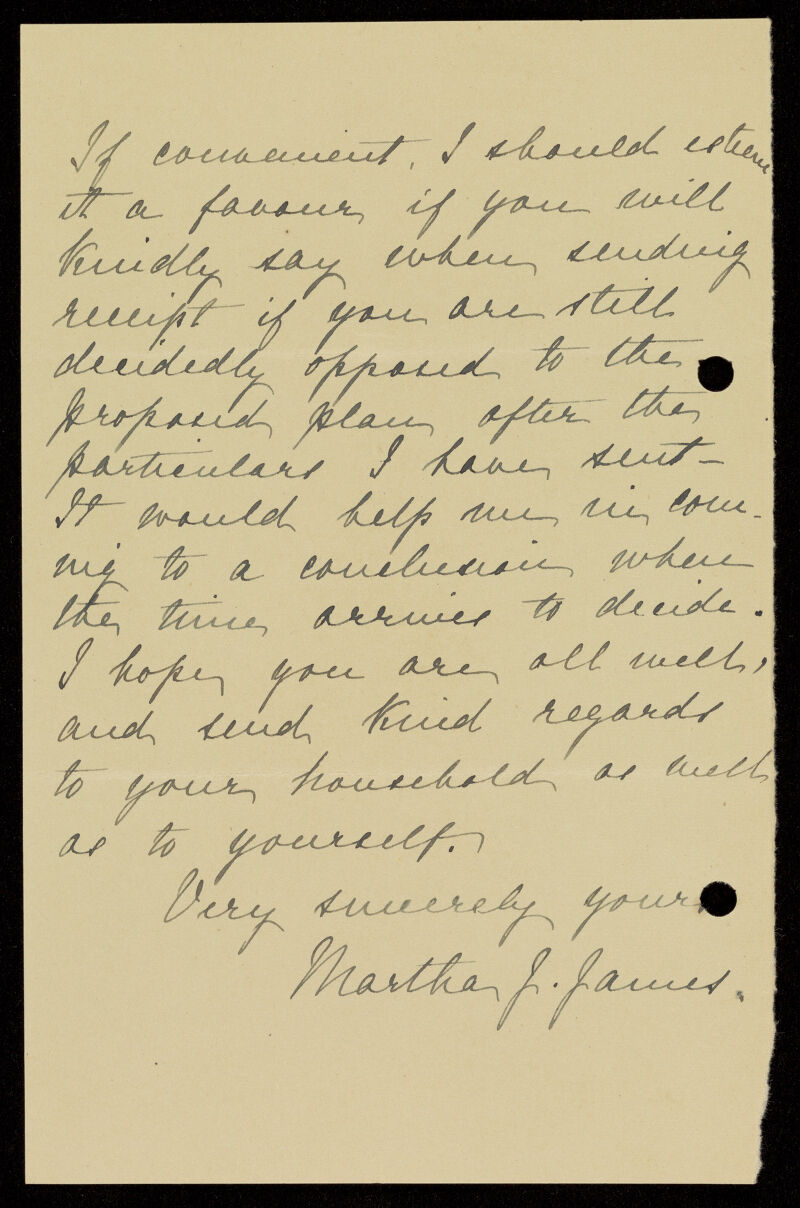 If convenient, I should esteem
it a favour if you will
kindly say when sending
receipt if you are still
decidedly opposed to the
proposed plan after the
particulars I have sent –
It would help me in com-
ing to a conclusion when
the time arrives to decide.
I hope you are all well,
and send kind regards
to your household as well
as to yourself.
Very sincerely yours
Martha J. James.